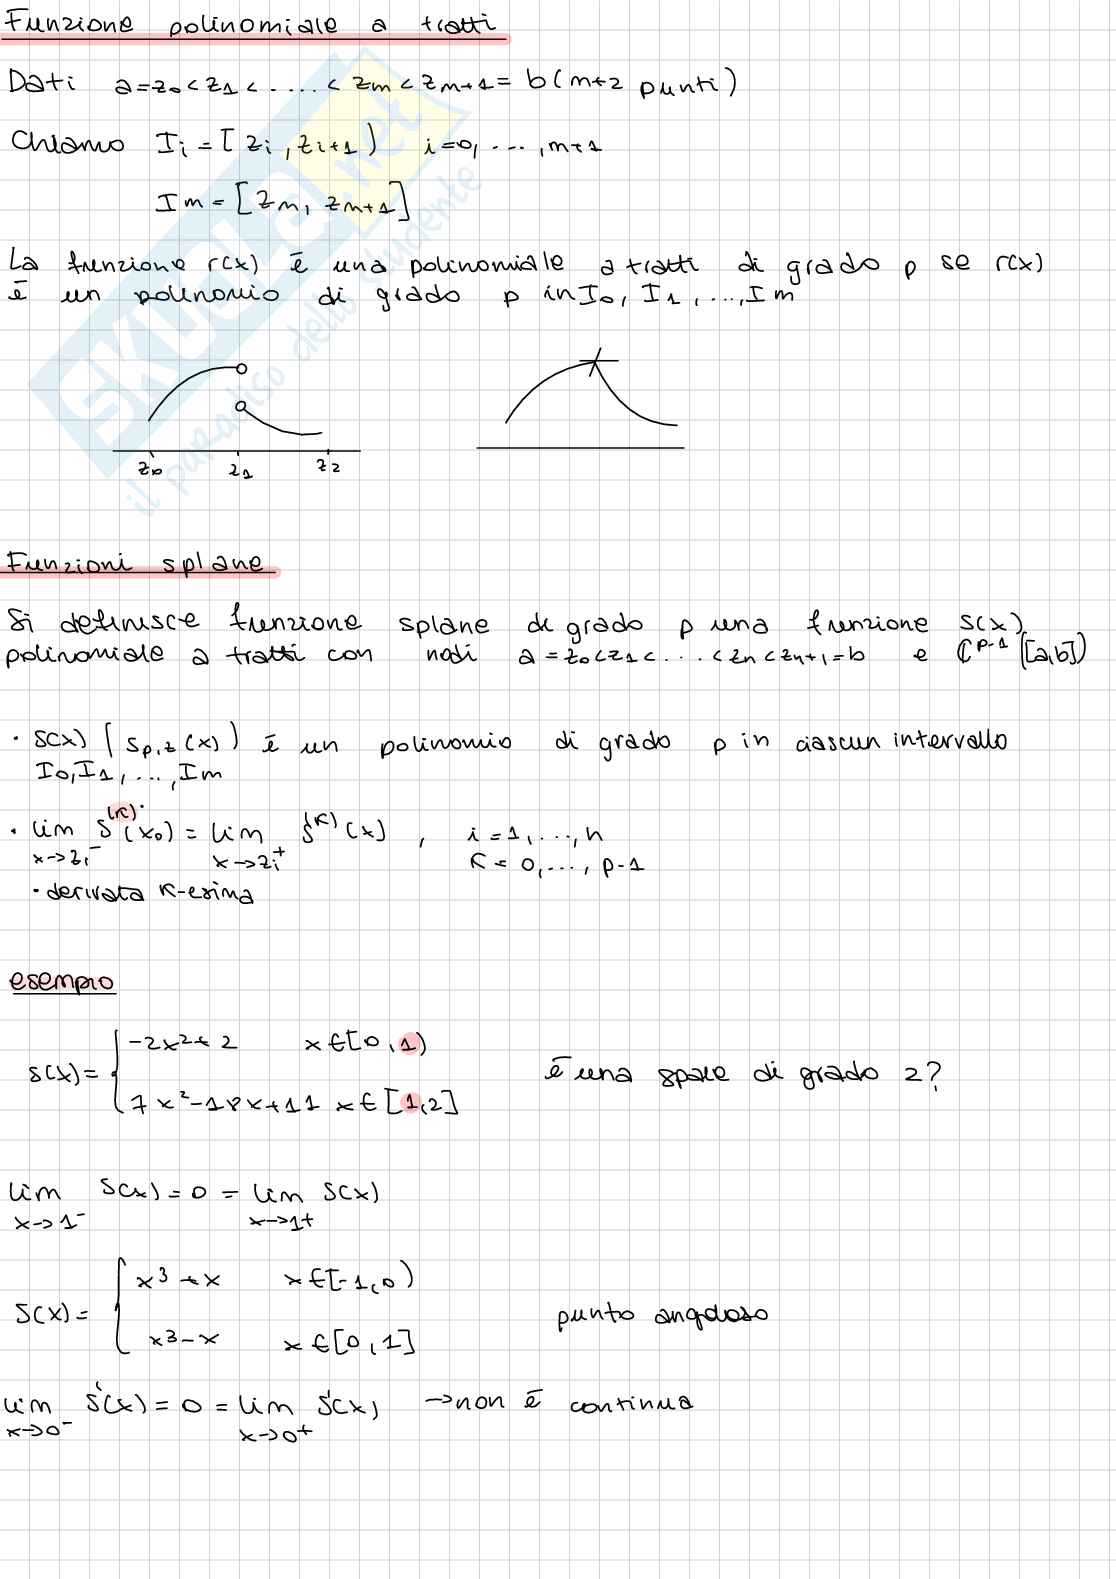 Funzione polinomiale a tratti
Dati a=z0<z1<....<zm<zm+1=b(m+2 punti)
Chiamo Ii=[zi,zi+1) i=0,...,m+1
Im=[zm, zm+1]
La funzione r(x) è una polinomiale a tratti di grado p se r(x)
è un polinomio di grado p in I0, I1, ..., Im
z0 z1 z2
Funzioni splane
Si definisce funzione splane di grado p una funzione s(x)
polinomiale a tratti con nodi a=z0<z1<...<zn<zn+1=b e C^p-1([a,b])
· s(x) (sp,z(x)) è un polinomio di grado p in ciascun intervallo
I0,I1,...,Im
· lim s^(k)(x0) = lim s^(k)(x) , i=1,...,n
x→zi^- x→zi^+ k=0,...,p-1
· derivata k-esima
esempio
s(x)= { -2x²+2 x∈[0,1)
7x²-18x+11 x∈[1,2]
è una spale di grado 2?
lim s(x)=0=lim s(x)
x→1^- x→1+
s(x)= { x³+x x∈[-1,0)
x³-x x∈[0,1]
punto angoloso
lim s'(x)=0=lim s'(x) →non è continua
x→0^- x→0+
SKUOLA.net
il paradiso dello studente